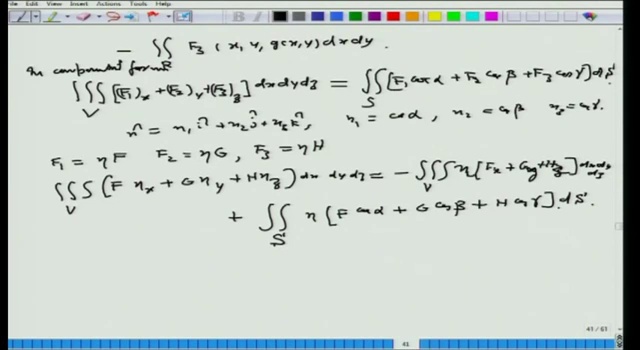 File Edit View Insert Actions Tools Help
− ∬_R F₃ (x, y, g(x,y)) dx dy.
In component form
∭_V [(F₁)_x + (F₂)_y + (F₃)_z] dx dy dz = ∬_S [F₁ cos α + F₂ cos β + F₃ cos γ] dS
n̂ = n₁ î + n₂ ĵ + n₃ k̂, n₁ = cos α, n₂ = cos β n₃ = cos γ.
F₁ = ηF F₂ = ηG, F₃ = ηH
∭_V (F η_x + G η_y + H η_z) dx dy dz = − ∭_V η [F_x + G_y + H_z] dx dy dz
+ ∬_S η [F cos α + G cos β + H cos γ] dS.
41 / 61
41